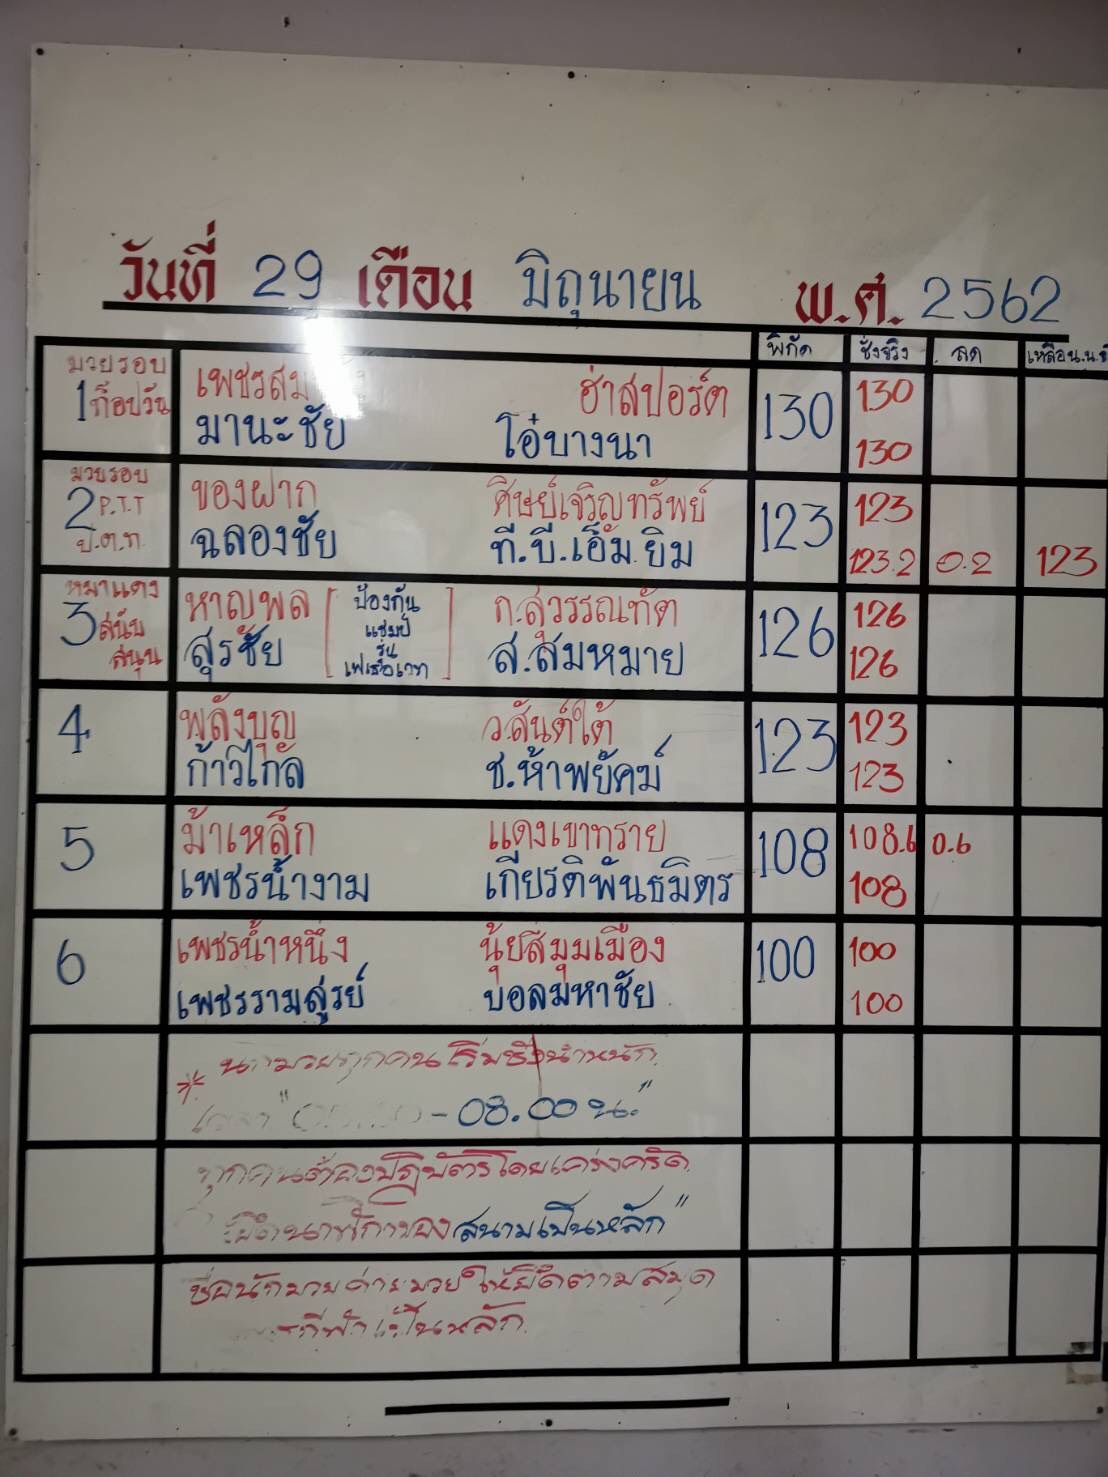 วันที่ 29 เดือน มิถุนายน พ.ศ. 2562
พิกัด ชั่งจริง ลด เหลือน.น.
มวยรอบ
1 ท็อปวัน
เพชรสม ฮ่าสปอร์ต 130 130
มานะชัย โอ๋บางนา 130
มวยรอบ
2 P.T.T
ป.ต.ท.
ของฝาก ศิษย์เจริญทรัพย์ 123 123
ฉลองชัย ที.บี.เอ็ม ยิม 123.2 0.2 123
หมาแดง
3 สนับ
สนุน
หาญพล ก.สุวรรณทัต 126 126
สุรชัย ส.สมหมาย 126
ป้องกัน
แชมป์
รุ่น
เฟเธอเวท
4 พลังบุญ ว.สันต์ใต้ 123 123
ก้าวไกล ช.ห้าพยัคฆ์ 123
5 ม้าเหล็ก แดงเขาทราย 108 108.6 0.6
เพชรน้ำงาม เกียรติพันธมิตร 108
6 เพชรน้ำหนึ่ง นุ้ยสี่มุมเมือง 100 100
เพชรรามสูรย์ บอลมหาชัย 100
* นักมวยทุกคนเริ่มชั่งน้ำหนัก
เวลา - 08.00 น."
ทุกคนต้องปฏิบัติโดยเคร่งครัด
นาฬิกาของสนามเป็นหลัก"
ชื่อนักมวยค่ายมวยให้ยึดตามสมุด
กีฬาเป็นหลัก